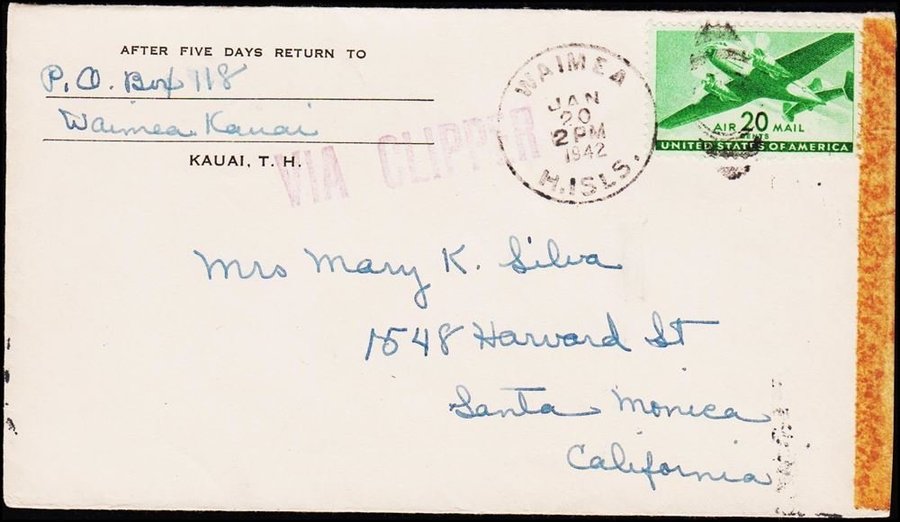 AFTER FIVE DAYS RETURN TO
P.O. Box 118
Waimea Kauai
KAUAI, T. H.
VIA CLIPPER
WAIMEA
JAN
20
2 PM
1942
H. ISLS.
AIR 20 MAIL
CENTS
UNITED STATES OF AMERICA
Mrs Mary K. Silva
1548 Harvard St
Santa Monica
California